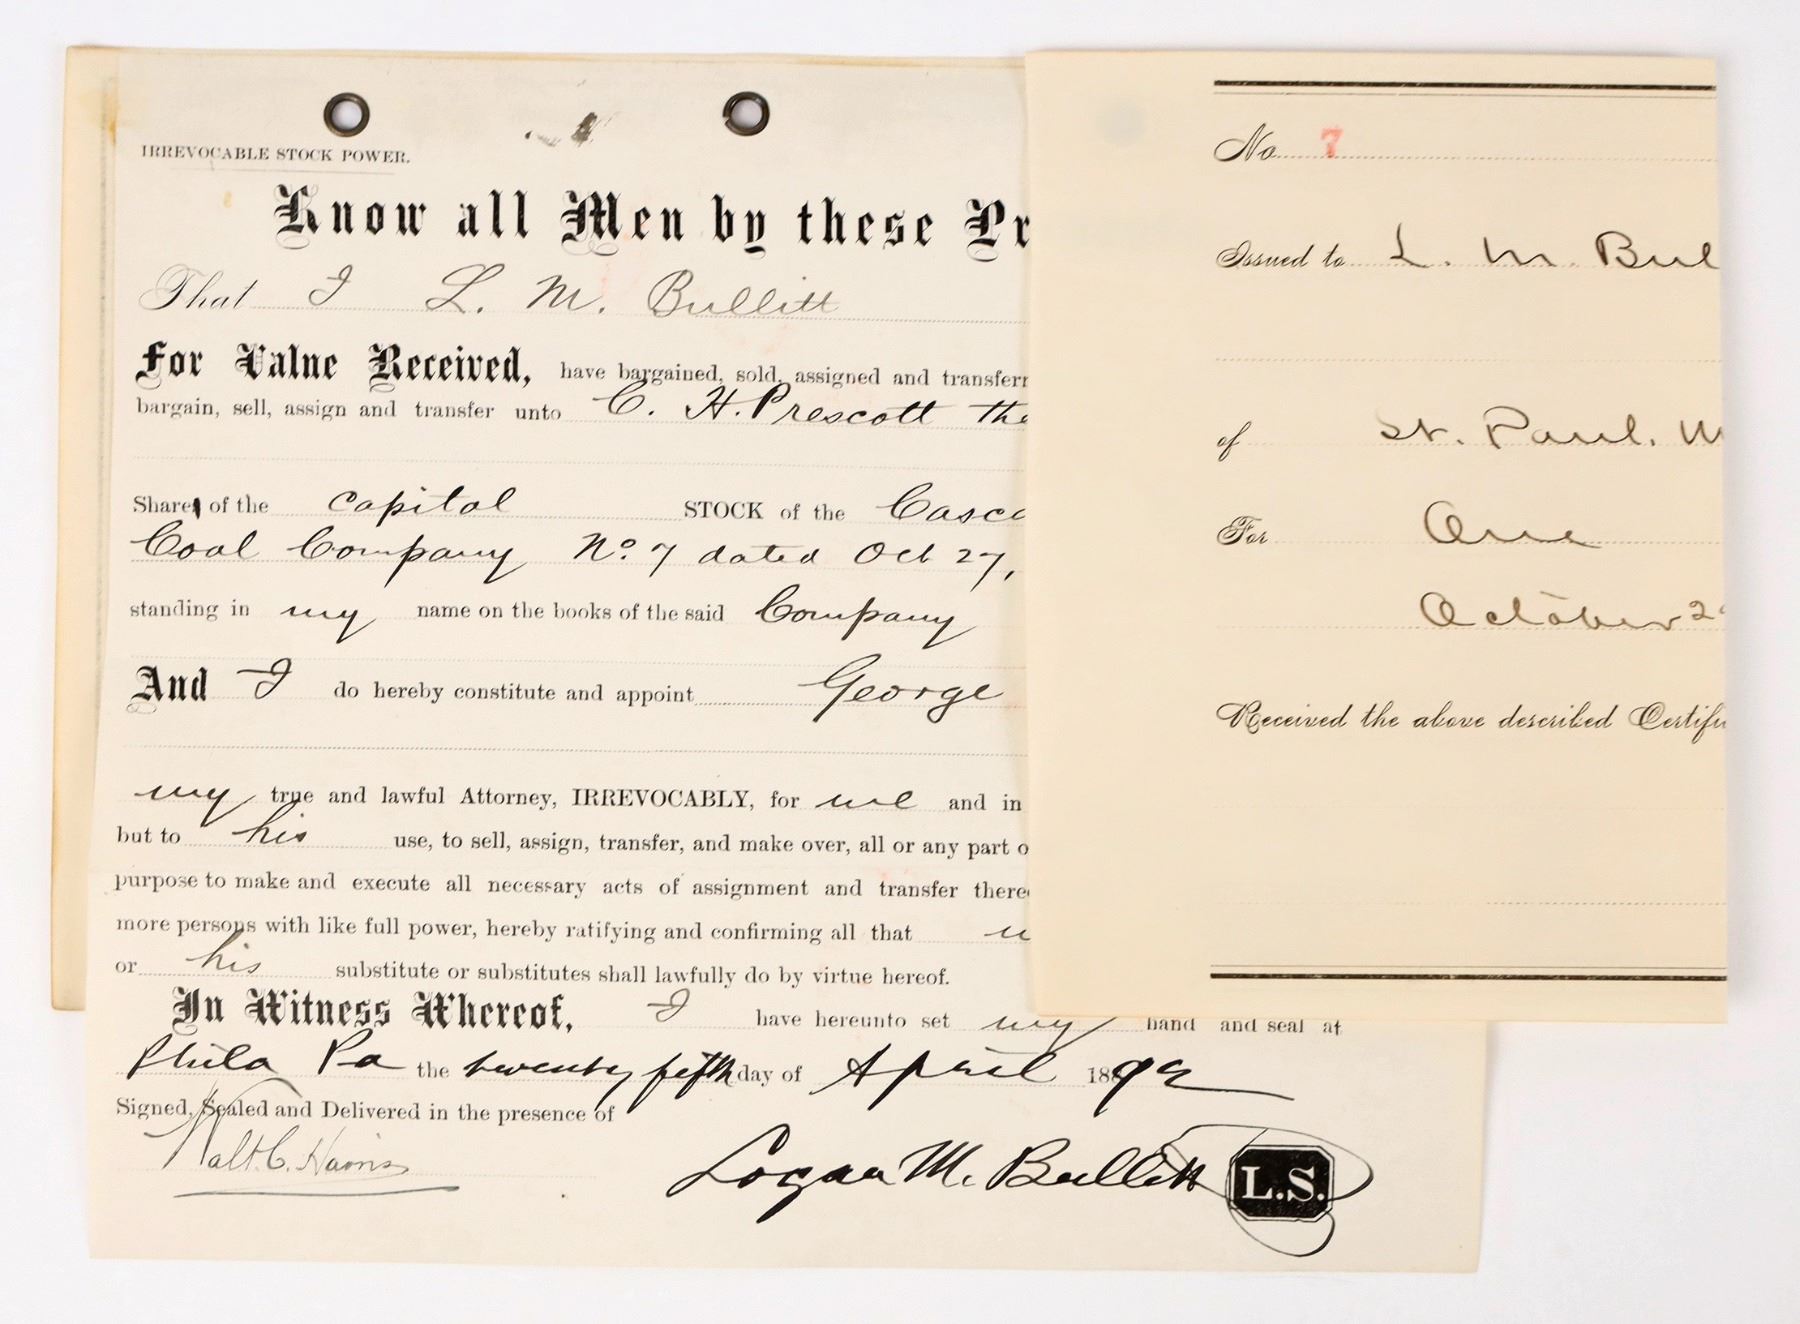 IRREVOCABLE STOCK POWER.
Know all Men by these Pr
That I L. M. Bullitt
For Value Received, have bargained, sold, assigned and transferr
bargain, sell, assign and transfer unto C. H. Prescott the
Share of the capital STOCK of the Casca
Coal Company No. 7 dated Oct 27,
standing in my name on the books of the said Company
And I do hereby constitute and appoint George
my true and lawful Attorney, IRREVOCABLY, for me and in
but to his use, to sell, assign, transfer, and make over, all or any part o
purpose to make and execute all necessary acts of assignment and transfer there
more persons with like full power, hereby ratifying and confirming all that
or his substitute or substitutes shall lawfully do by virtue hereof.
In Witness Whereof, I have hereunto set my hand and seal at
Phila Pa the twenty fifth day of April 1892
Signed, Sealed and Delivered in the presence of
Walt. C. Harris
Logan M. Bullitt L.S.
No. 7
Issued to L. M. Bul
of St. Paul. M
For One
October 2
Received the above described Certifi